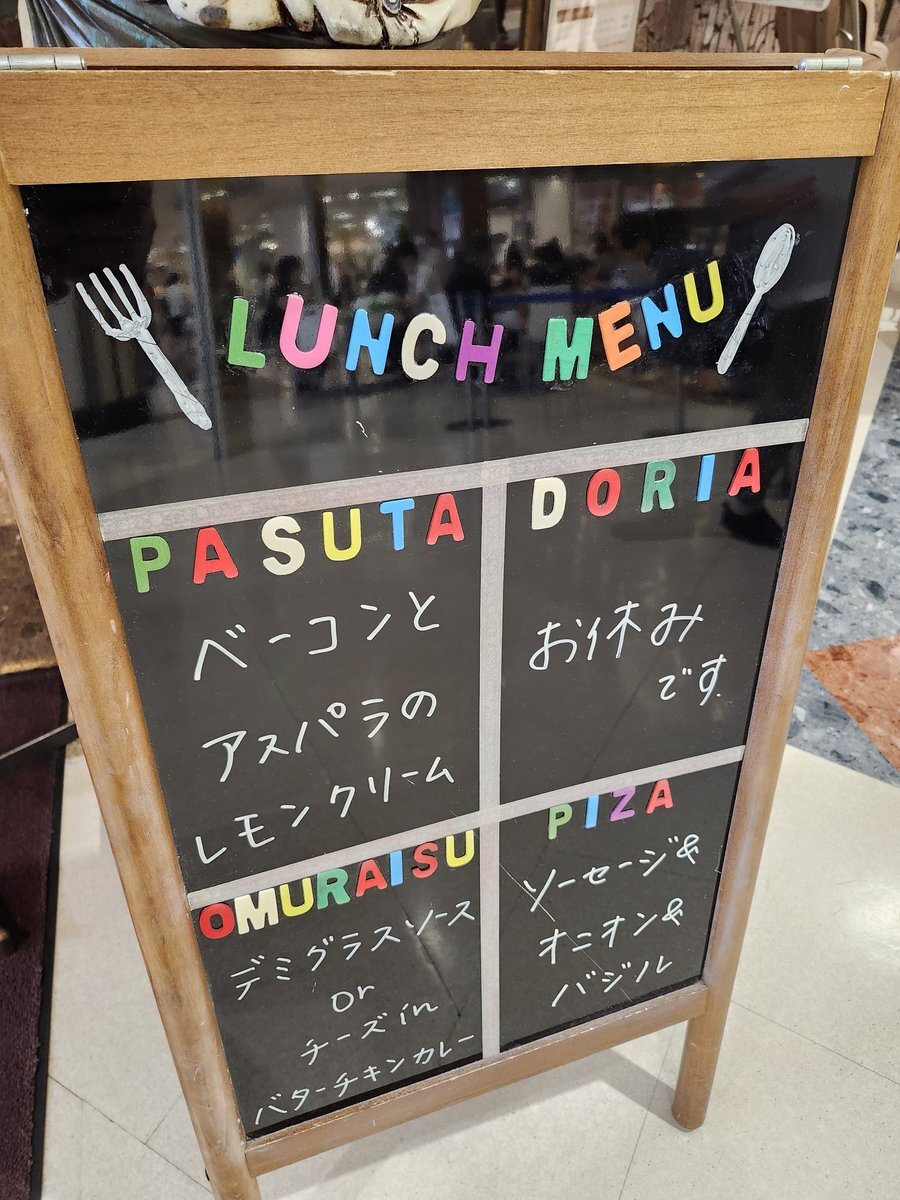 LUNCH MENU
PASUTA
ベーコンと
アスパラの
レモンクリーム
DORIA
お休み
です.
OMURAISU
デミグラスソース
or
チーズin
バターチキンカレー
PIZA
ソーセージ&
オニオン&
バジル